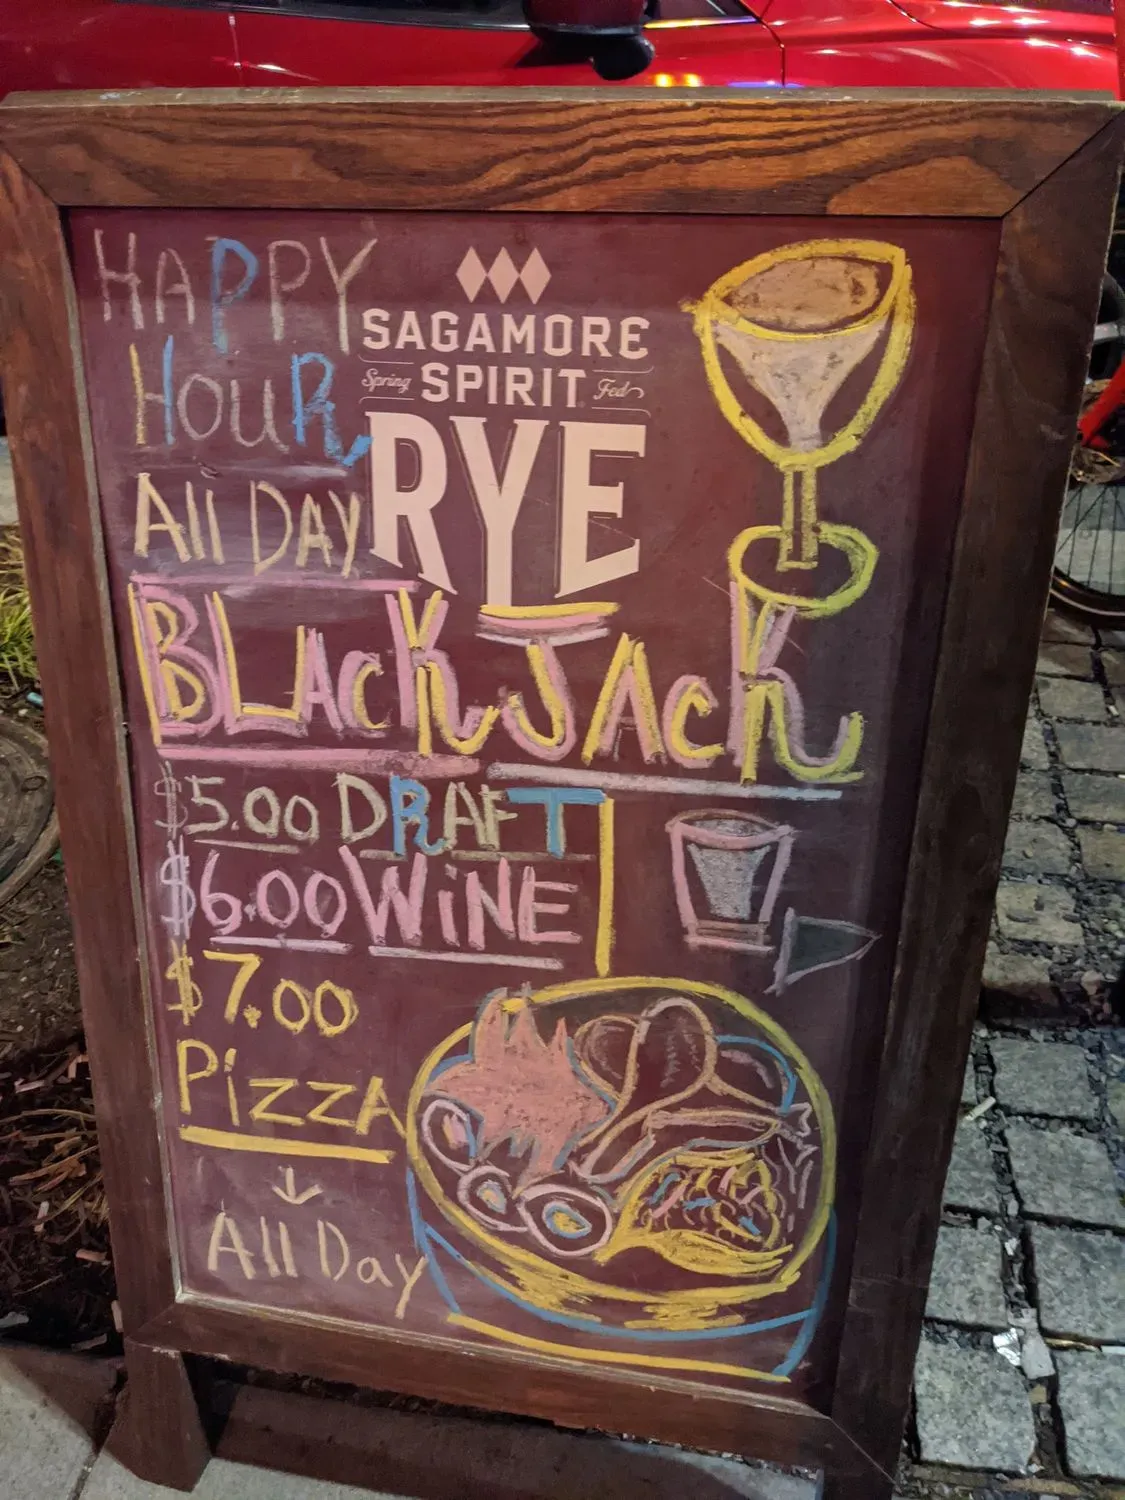 HAPPY
HOUR
All DAY
SAGAMORE
Spring SPIRIT Fed
RYE
BLAcK JAcK
$5.00 DRAFT
$6.00 WiNE
$7.00
PiZZA
All Day